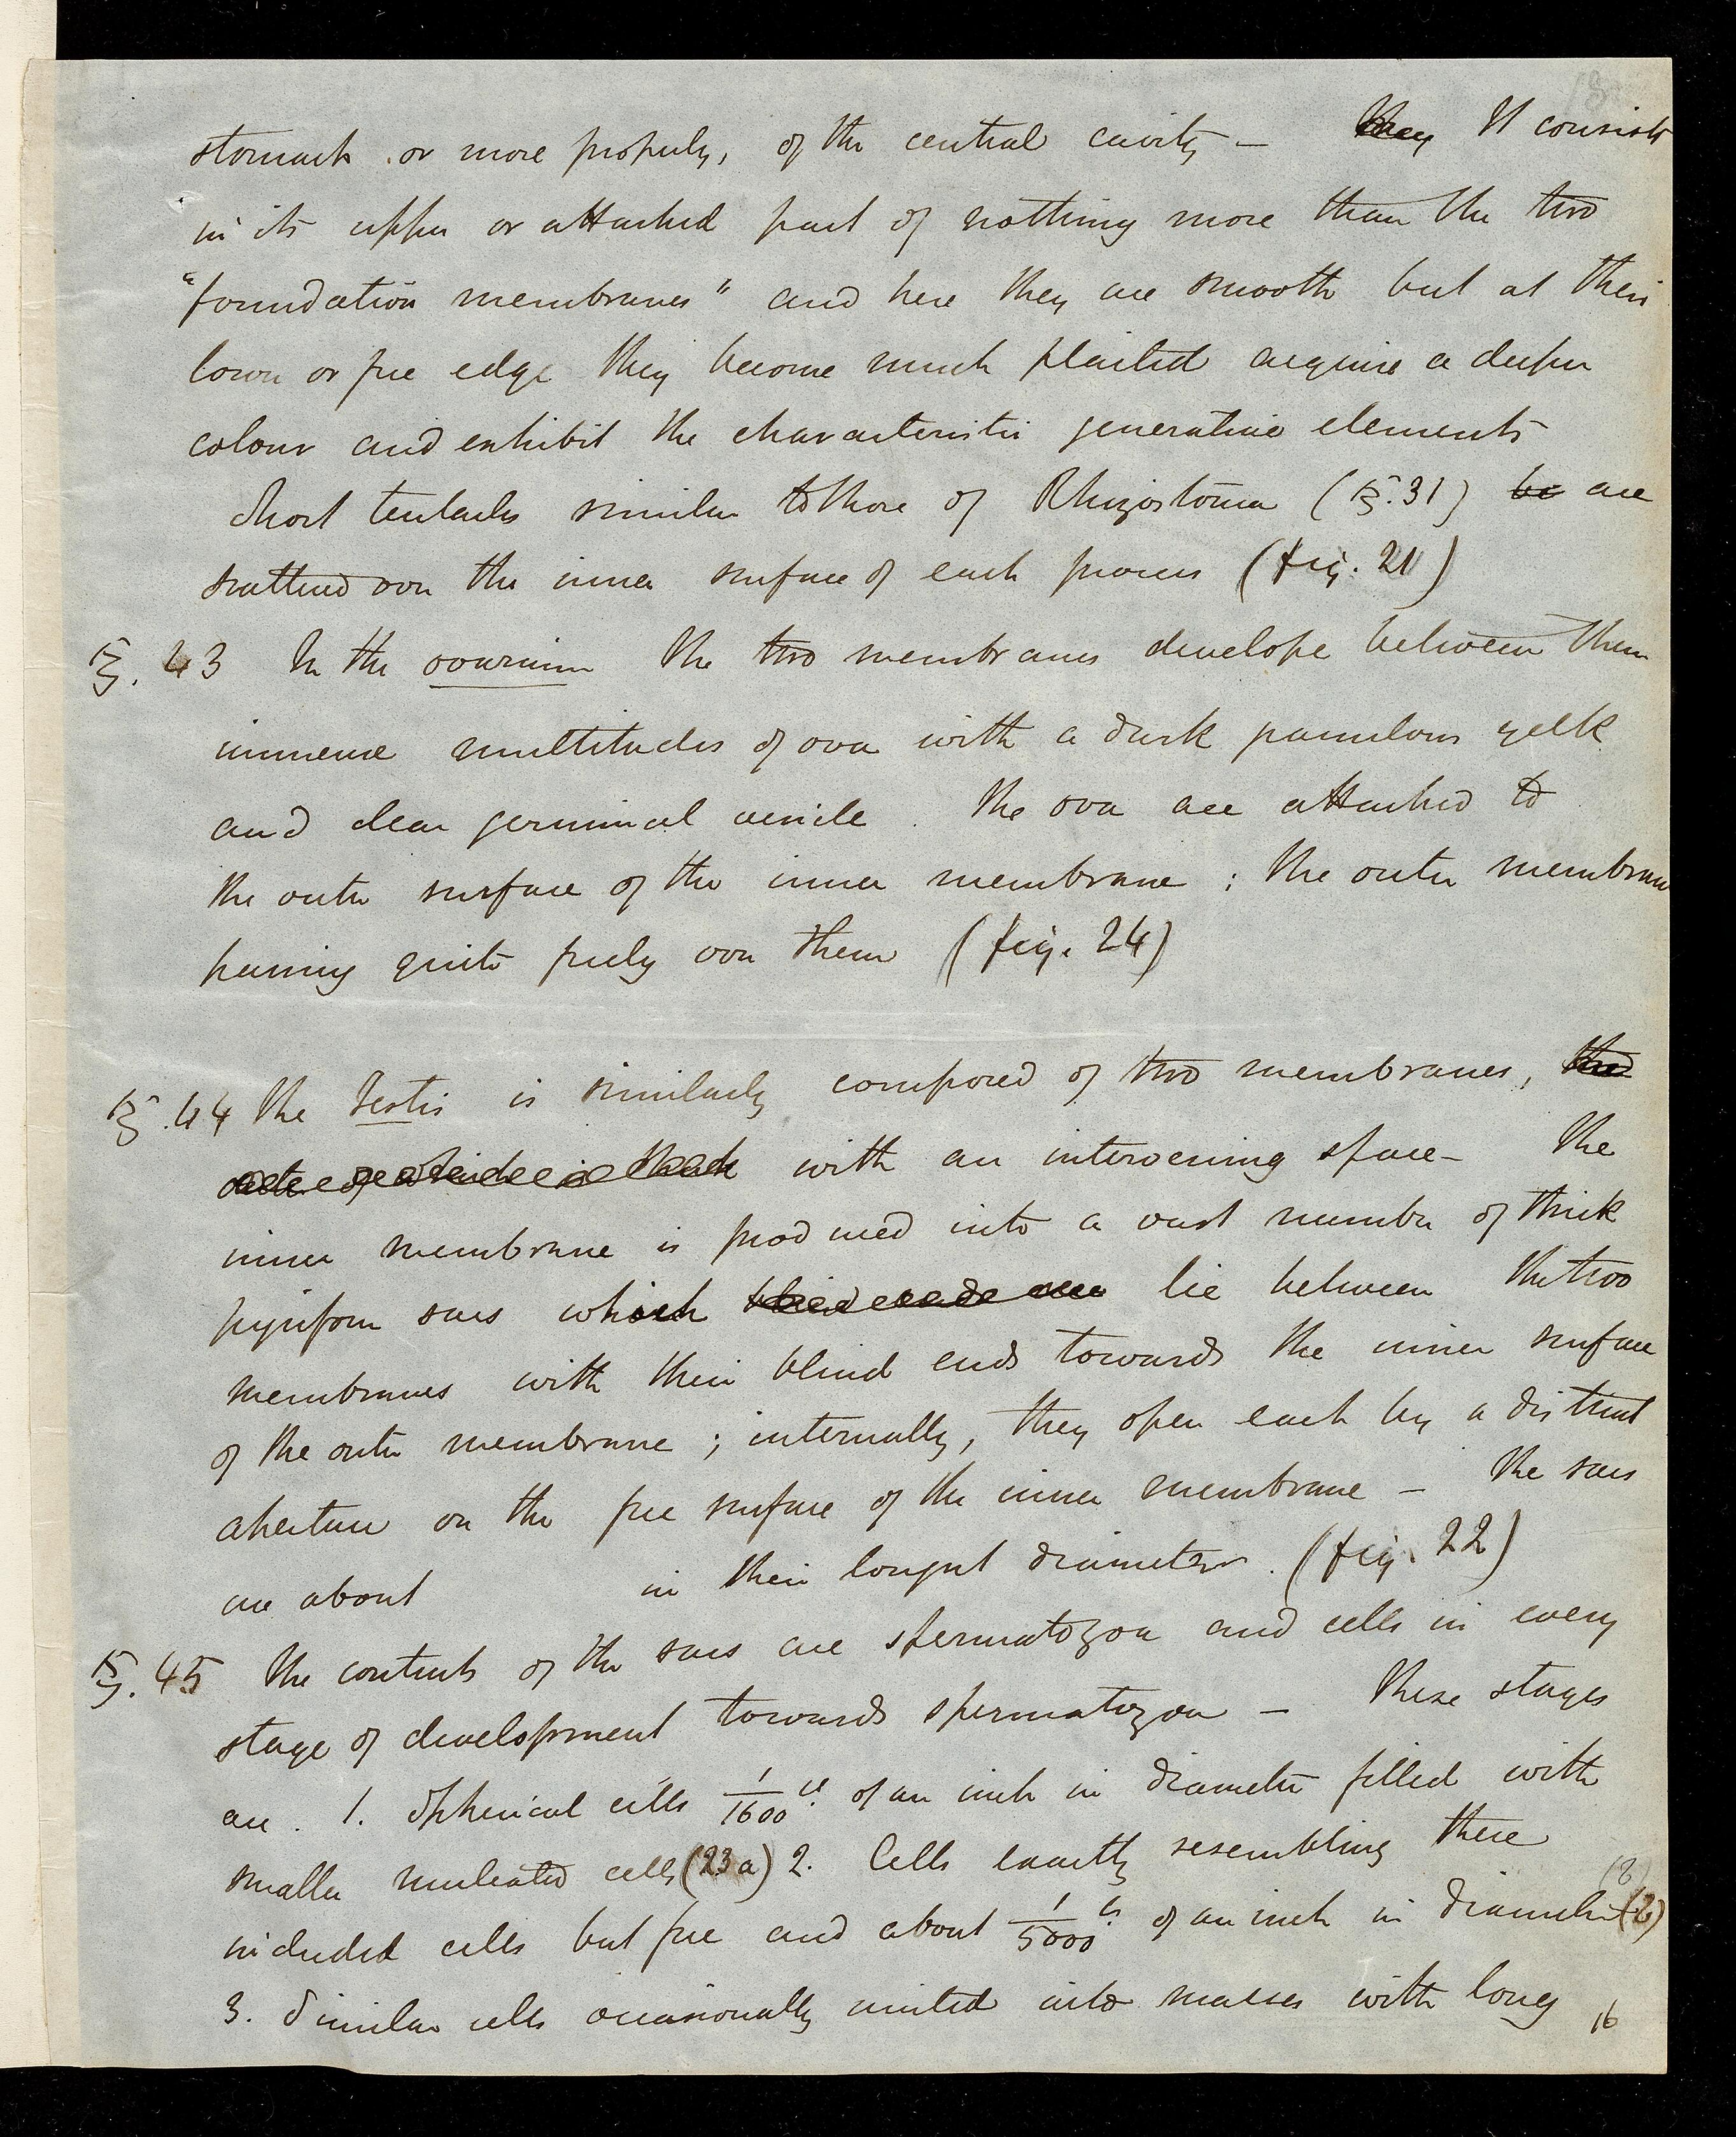 stomach or more properly, of the central cavity — They It consists
in its upper or attached part of nothing more than the two
"foundation membranes" and here they are smooth but at their
lower or free edge they become much plaited acquire a deeper
colour and exhibit the characteristic generative elements
Short tentacles similar to those of Rhizostoma (§.31) be are
scattered over the inner surface of each process (fig. 21)
§. 43 In the ovarium the two membranes develope between them
immense multitudes of ova with a dark granulous yelk
and clear germinal vesicle. The ova are attached to
the outer surface of the inner membrane; the outer membrane
passing quite freely over them (fig. 24)
§. 44 The testis is similarly composed of two membranes, the
outer of which is thick with an intervening space — The
inner membrane is produced into a vast number of thick
pyriform sacs which blind ends are lie between the two
membranes with their blind ends towards the inner surface
of the outer membrane; internally, they open each by a distinct
aperture on the free surface of the inner membrane — The sacs
are about in their longest diameter. (fig. 22)
§. 45 The contents of the sacs are spermatozoa and cells in every
stage of development towards spermatozoa — These stages
are. 1. Spherical cells 1/1600th of an inch in diameter filled with
smaller nucleated cells (23a) 2. Cells exactly resembling these
included cells but free and about 1/5000th of an inch in diameter (b)
3. Similar cells occasionally united into masses with long
16